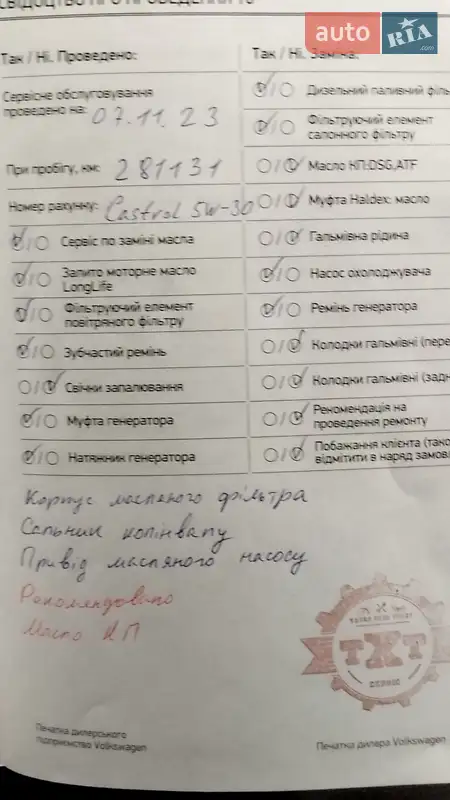 СВІДОЦТВО ПРО ПРОВЕДЕННЯ ТО
auto RIA.com
Так / Ні. Проведено:
Сервісне обслуговування
проведено на: 07.11.23
При пробігу, км: 281131
Номер рахунку: Castrol 5W-30
Сервіс по заміні масла
Залито моторне масло
LongLife
Фільтруючий елемент
повітряного фільтру
Зубчастий ремінь
Свічки запалювання
Муфта генератора
Натяжник генератора
Так / Ні. Заміна:
Дизельний паливний філь
Фільтруючий елемент
салонного фільтру
Масло КП:DSG,ATF
Муфта Haldex: масло
Гальмівна рідина
Насос охолоджувача
Ремінь генератора
Колодки гальмівні (пере
Колодки гальмівні (задн
Рекомендація на
проведення ремонту
Побажання клієнта (тако
відмітити в наряд замов
Корпус масляного фільтра
Сальник колінвалу
Привід масляного насосу
Рекомендовано
Масло КП
ТХТ
СЕРВІС
Печатка дилерського
підприємства Volkswagen
Печатка дилера Volkswagen